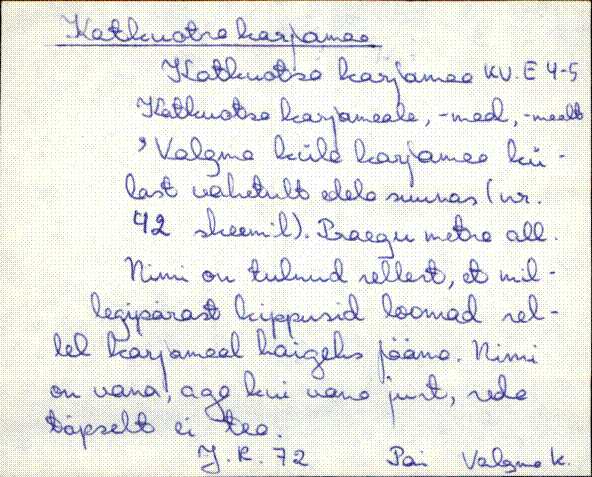 Katkuotsa karjamaa
Katkuotsa karjamaa KV. E 4-5
Katkuotsa karjamaale, -maal, -maalt
, Valgma küla karjamaa kü-
last vahetult edela suunas (nr.
42 skeemil). Praegu metsa all.
Nimi on tulnud sellest, et mil-
legipärast kippusid loomad sel-
lel karjamaal haigeks jääma. Nimi
on vana, aga kui vana just, seda
täpselt ei tea.
J. R. 72 Pai Valgma k.